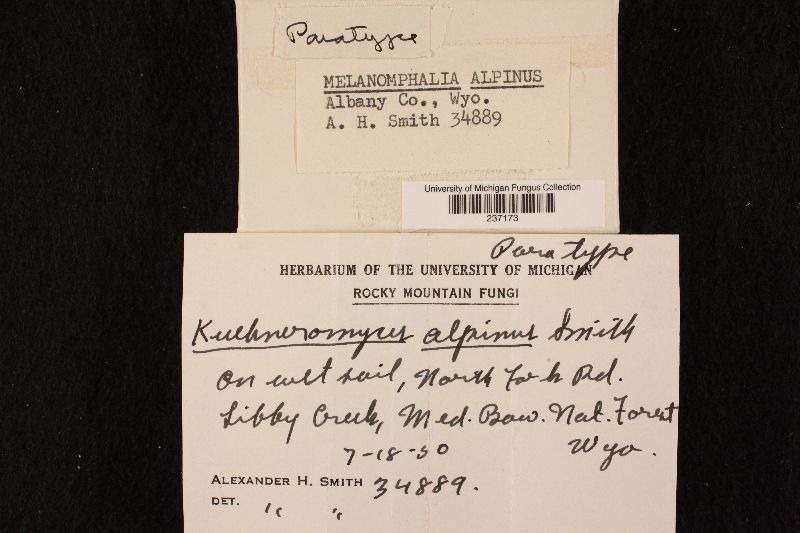 Paratype
MELANOMPHALIA ALPINUS
Albany Co., Wyo.
A. H. Smith 34889
University of Michigan Fungus Collection
237173
Paratype
HERBARIUM OF THE UNIVERSITY OF MICHIGAN
ROCKY MOUNTAIN FUNGI
Kuehneromyces alpinus Smith
On wet soil, North Fork Rd.
Libby Creek, Med. Bow. Nat. Forest
7-18-50 Wyo.
ALEXANDER H. SMITH 34889.
DET. " "